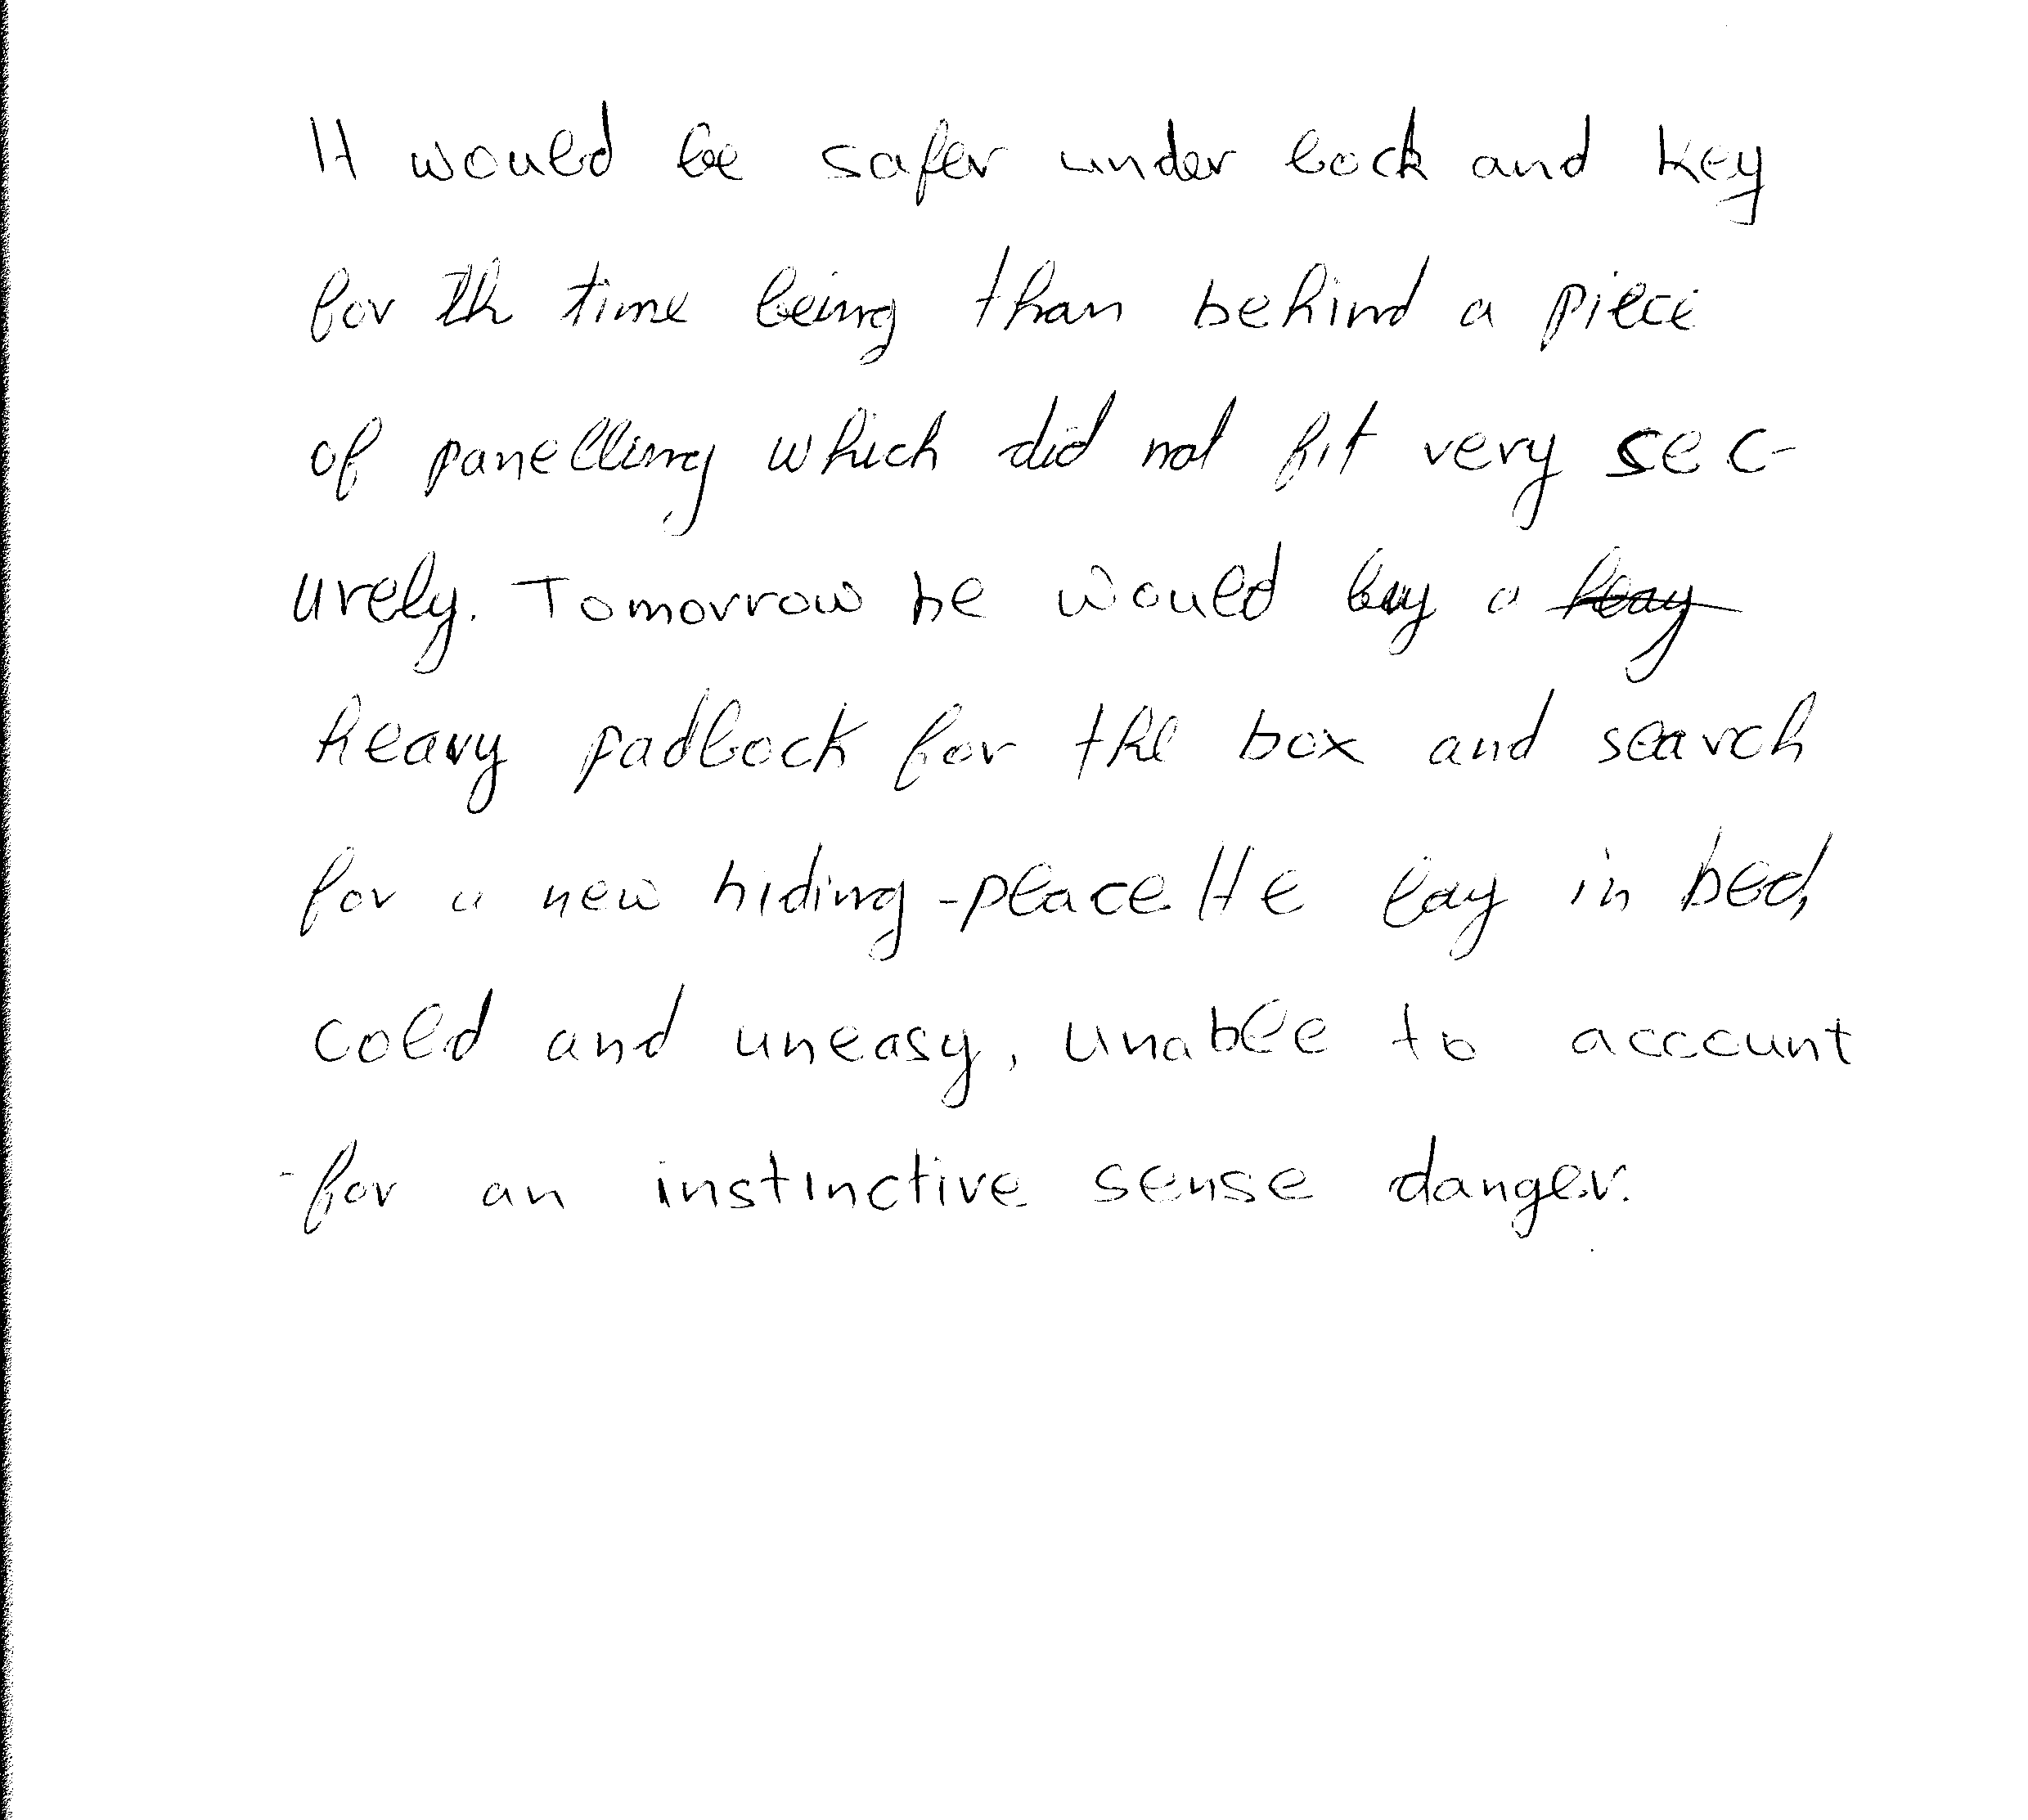 It would be safer under lock and key
for th time being than behind a piece
of panelling which did not fit very sec-
urely. Tomorrow he would buy a heay
heavy padlock for the box and search
for a new hiding-place He lay in bed,
cold and uneasy, unable to account
for an instinctive sense danger.